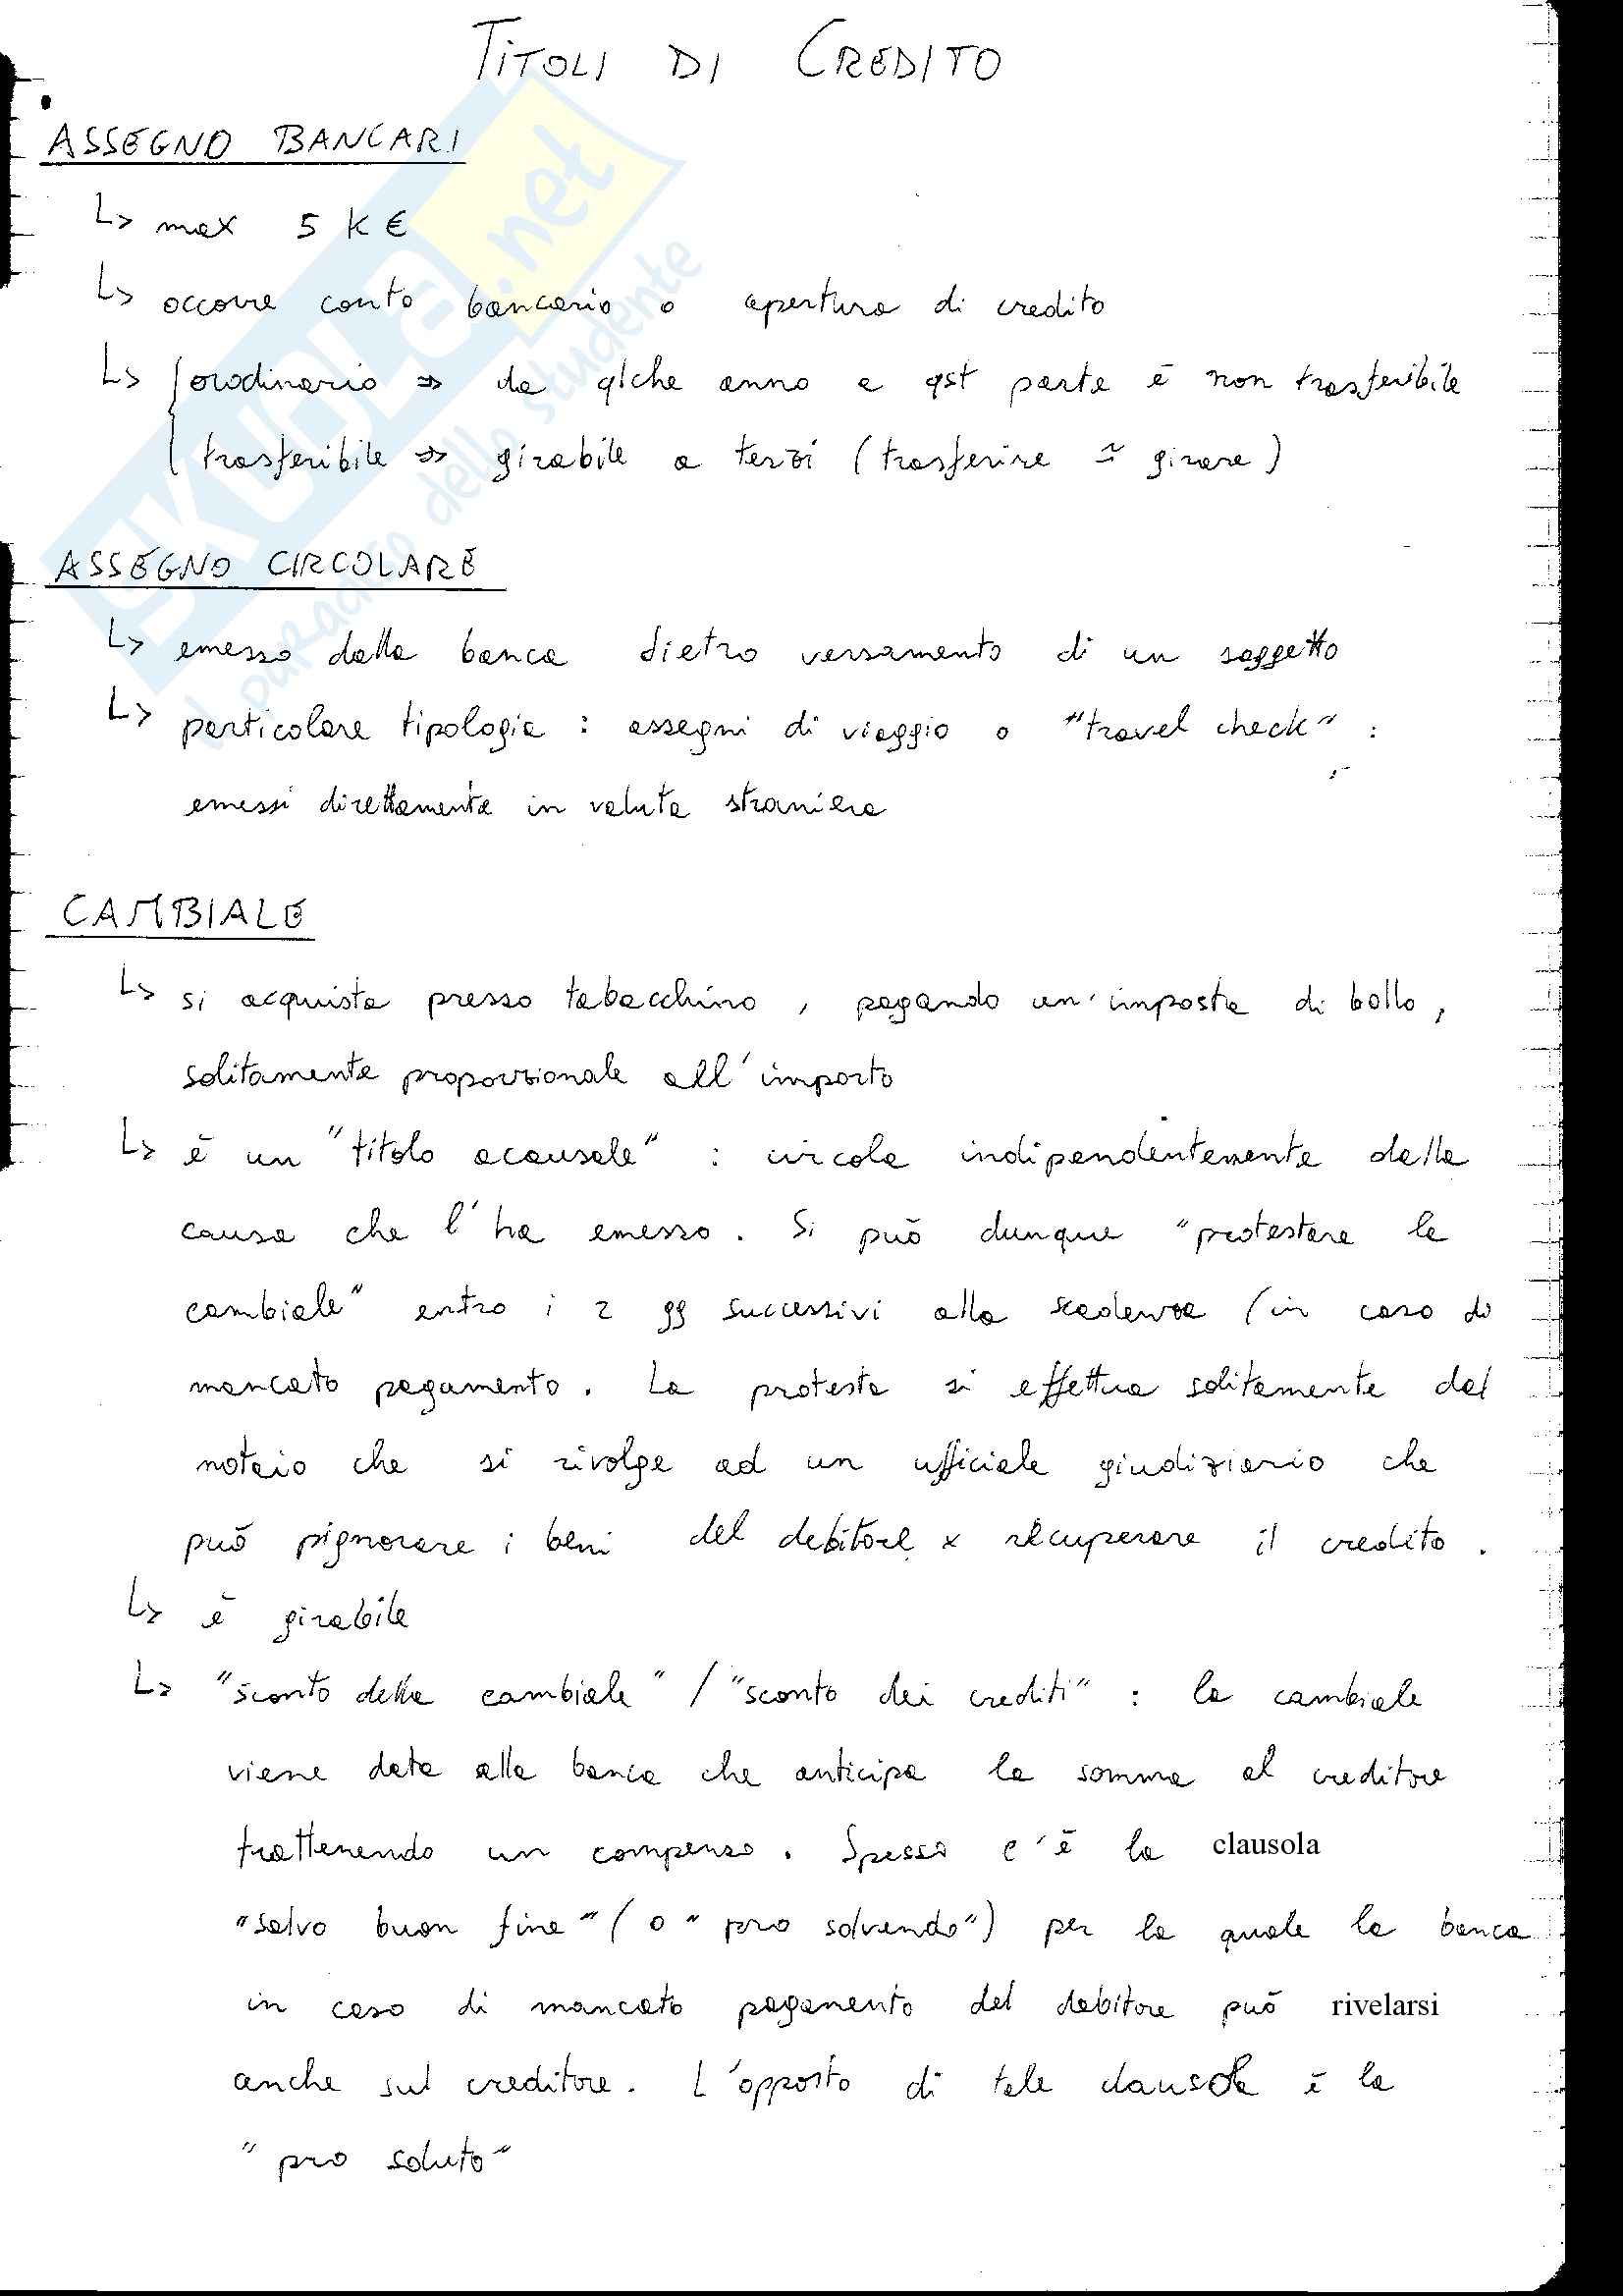 TITOLI DI CREDITO
ASSEGNO BANCARI
↳ max 5 K €
↳ occorre conto bancario o apertura di credito
↳ { orodinario ⇒ da qlche anno a qst parte è non trasferibile
{ trasferibile ⇒ girabile a terzi (trasferire ≃ girare)
ASSEGNO CIRCOLARE
↳ emesso dalla banca dietro versamento di un soggetto
↳ particolare tipologia : assegni di viaggio o "travel check" :
emessi direttamente in valuta straniera
CAMBIALE
↳ si acquista presso tabacchino , pagando un'imposta di bollo ,
solitamente proporzionale all'importo
↳ è un "titolo acausale" : circola indipendentemente dalla
causa che l'ha emesso . Si può dunque "protestare la
cambiale" entro i 2 gg successivi alla scadenza (in caso di
mancato pagamento . La protesta si effettua solitamente dal
notaio che si rivolge ad un ufficiale giudiziario che
può pignorare i beni del debitore x recuperare il credito .
↳ è girabile
↳ "sconto della cambiale" / "sconto dei crediti" : la cambiale
viene data alla banca che anticipa la somma al creditore
trattenendo un compenso . Spesso c'è la clausola
"salvo buon fine" ( o " pro solvendo") per la quale la banca
in caso di mancato pagamento del debitore può rivelarsi
anche sul creditore . L'opposto di tale clausola è la
" pro soluto"
SKUOLA.net
il paradiso dello studente